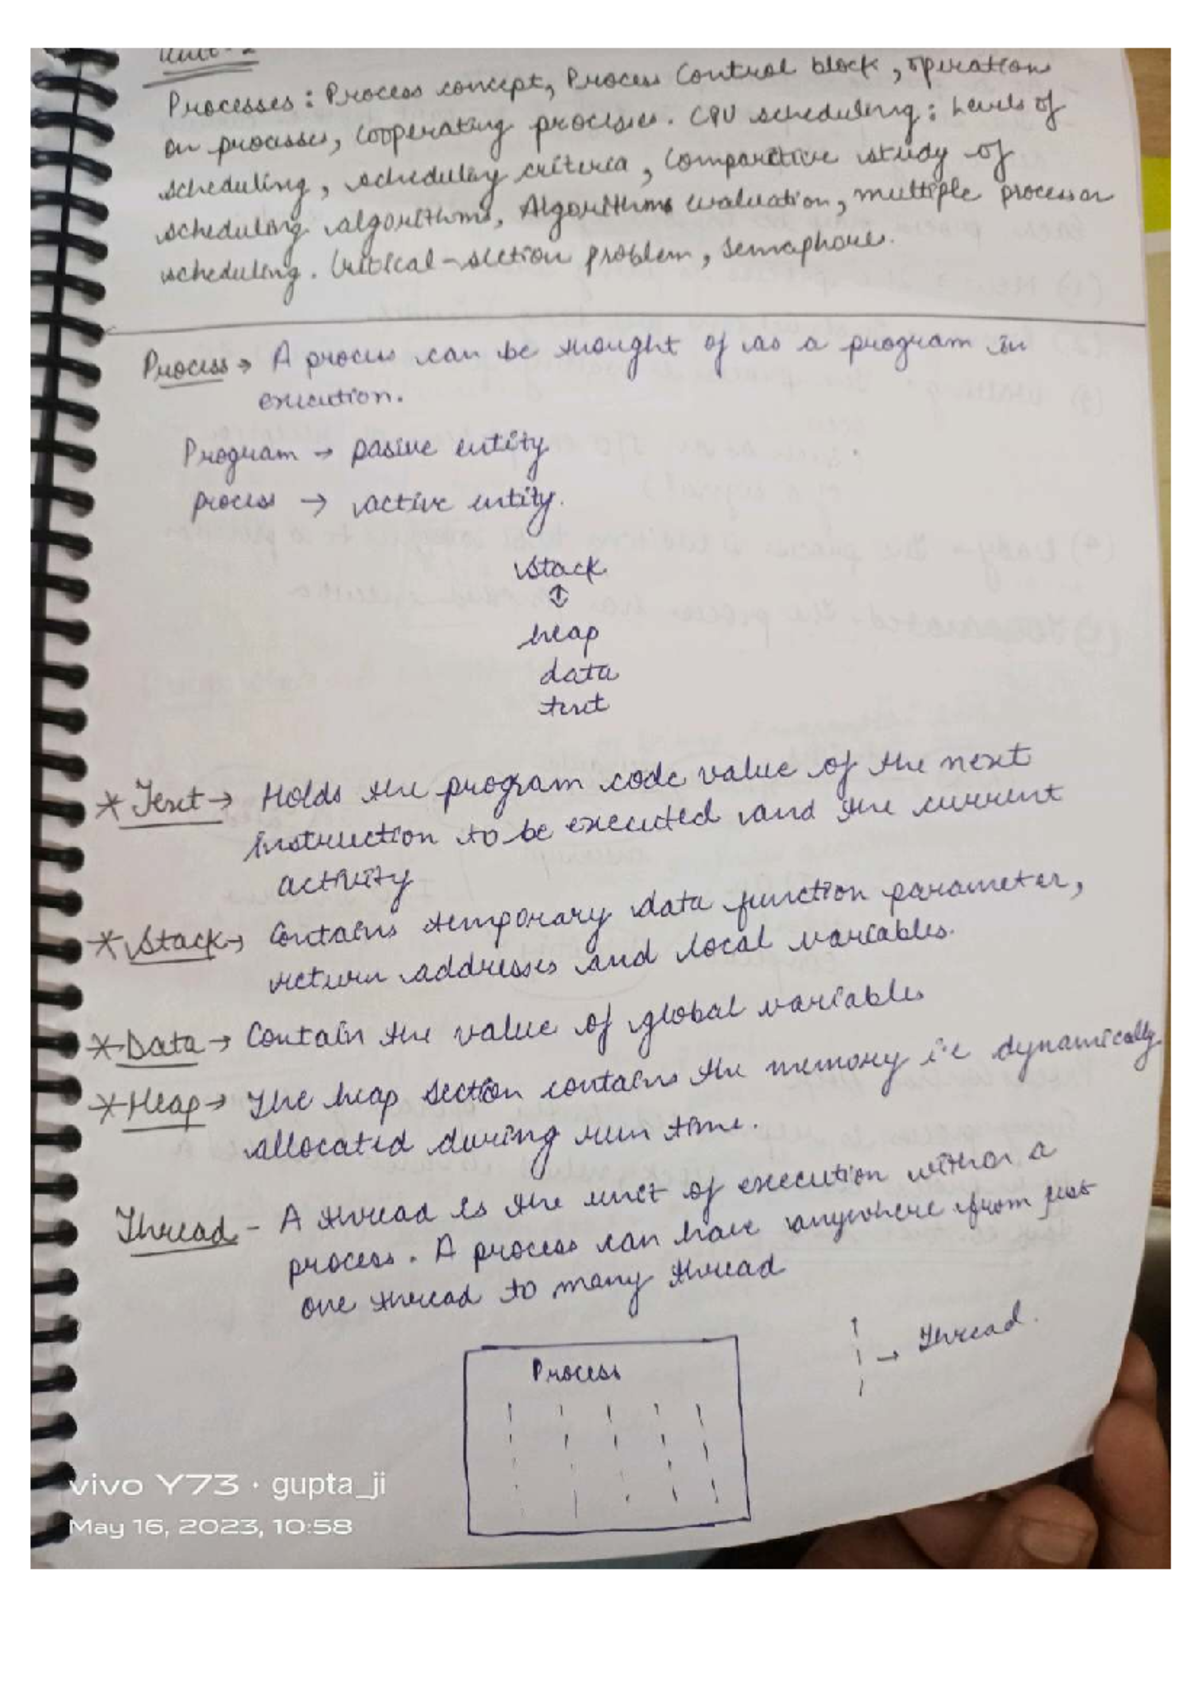 Unit-2
Processes : Process concept, Process Control block, operation
on processes, cooperating processes. CPU scheduling : Levels of
scheduling, scheduling criteria, Comparitive study of
scheduling algorithms, Algorithms evaluation, multiple processor
scheduling. Critical-section problem, semaphore.
Process → A process can be thought of as a program in
execution.
Program → pasive entity
process → active entity.
stack
⇕
heap
data
text
* Text → Holds the program code value of the next
instruction to be executed and the current
activity
* Stack → Contains temporary data function parameter,
return addresses and local variables.
* Data → Contain the value of global variables
* Heap → The heap section contains the memory i.e dynamically
allocated during run time.
Thread - A thread is the unit of execution within a
process. A process can have anywhere from just
one thread to many thread
→ Thread.
Process
vivo Y73 · gupta_ji
May 16, 2023, 10:58